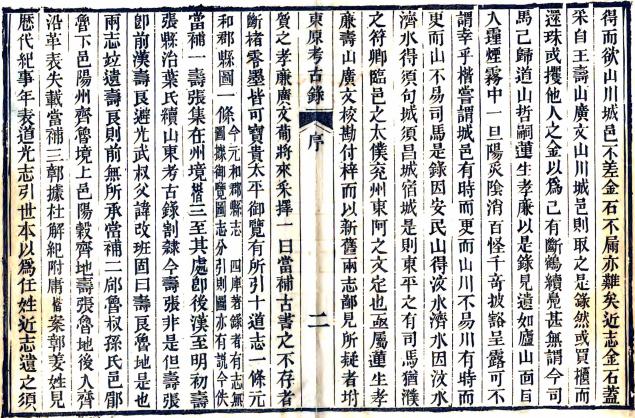 得而欲山川城邑不差金石不屚亦難矣近志金石蓋
采自王壽山廣文山川城邑則取之是錄然或買櫝而
還珠或攫他人之金以爲己有斷鶴續鳧甚無謂今司
馬己歸道山哲嗣蓮生孝廉以是錄見遺如廬山面目
人蘿煙霧中一旦陽炎陰消百怪千奇披豁呈露可不
謂幸乎楷嘗謂城邑有時而更而山川不易川有時而
更而山不易司馬是錄因安民山得汶水濟水因汶水
濟水得須句城須昌城宿城是則東平之有司馬猶濮
之符卿臨邑之太僕兖州東阿之文定也亟屬蓮生孝
廉壽山廣文校勘付梓而以新舊兩志鄙見所疑者坿
東原考古錄
序
二
質之孝廉廣文蒭將來釆擇一曰當補古書之不存者
斷楮零墨皆可寶貴太平御覽有所引十道志一條元
和郡縣圖一條今元和郡縣志四庫著錄者有志無圖據御覽圖志分引則圖亦有說今佚
當補一壽張集在州境楷三至其處卽後漢至明初壽
張縣治葉氏續山東考古錄割隸今壽張非是但壽張
卽前漢壽良避光武叔父諱改班固曰壽良魯地是也
兩志竝遺壽良則前無所承當補二郈魯叔孫氏邑郿
魯下邑陽州齊魯境上邑陽穀齊地壽張魯地後人齊
沿革表失載當補三鄣據杜解紀附庸楷案鄣姜姓見
歷代紀事年表道光志引世本以爲任姓近志遺之須